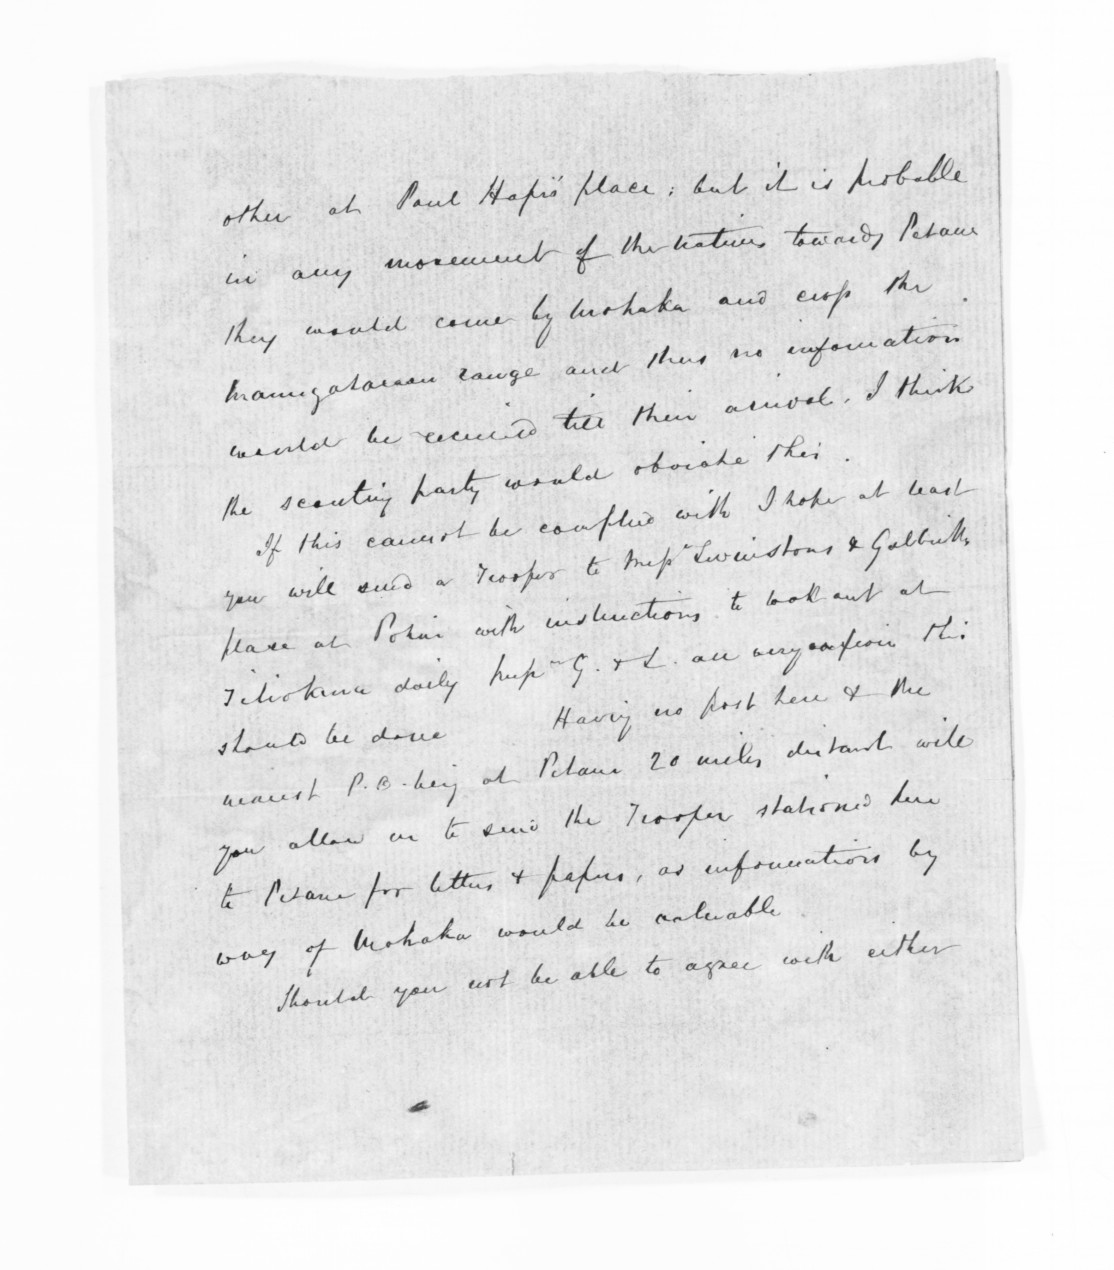 other at Paul Hapi's place; but it is probable
in any movement of the natives towards Petane
they would come by Mohaka and cross the
Maungaharuru range and thus no information
would be received till their arrival. I think
the scouting party would obviate this.
If this cannot be complied with I hope at least
you will send a Trooper to Messrs &
place at with instructions to look out at
Titiokura daily Messrs G. & L. are very anxious this
should be done Having no post here & the
nearest P.O. being at Petane 20 miles distant will
you allow us to send the Trooper stationed here
to Petane for letters & papers, as information by
way of Mohaka would be valuable
Should you not be able to agree with either